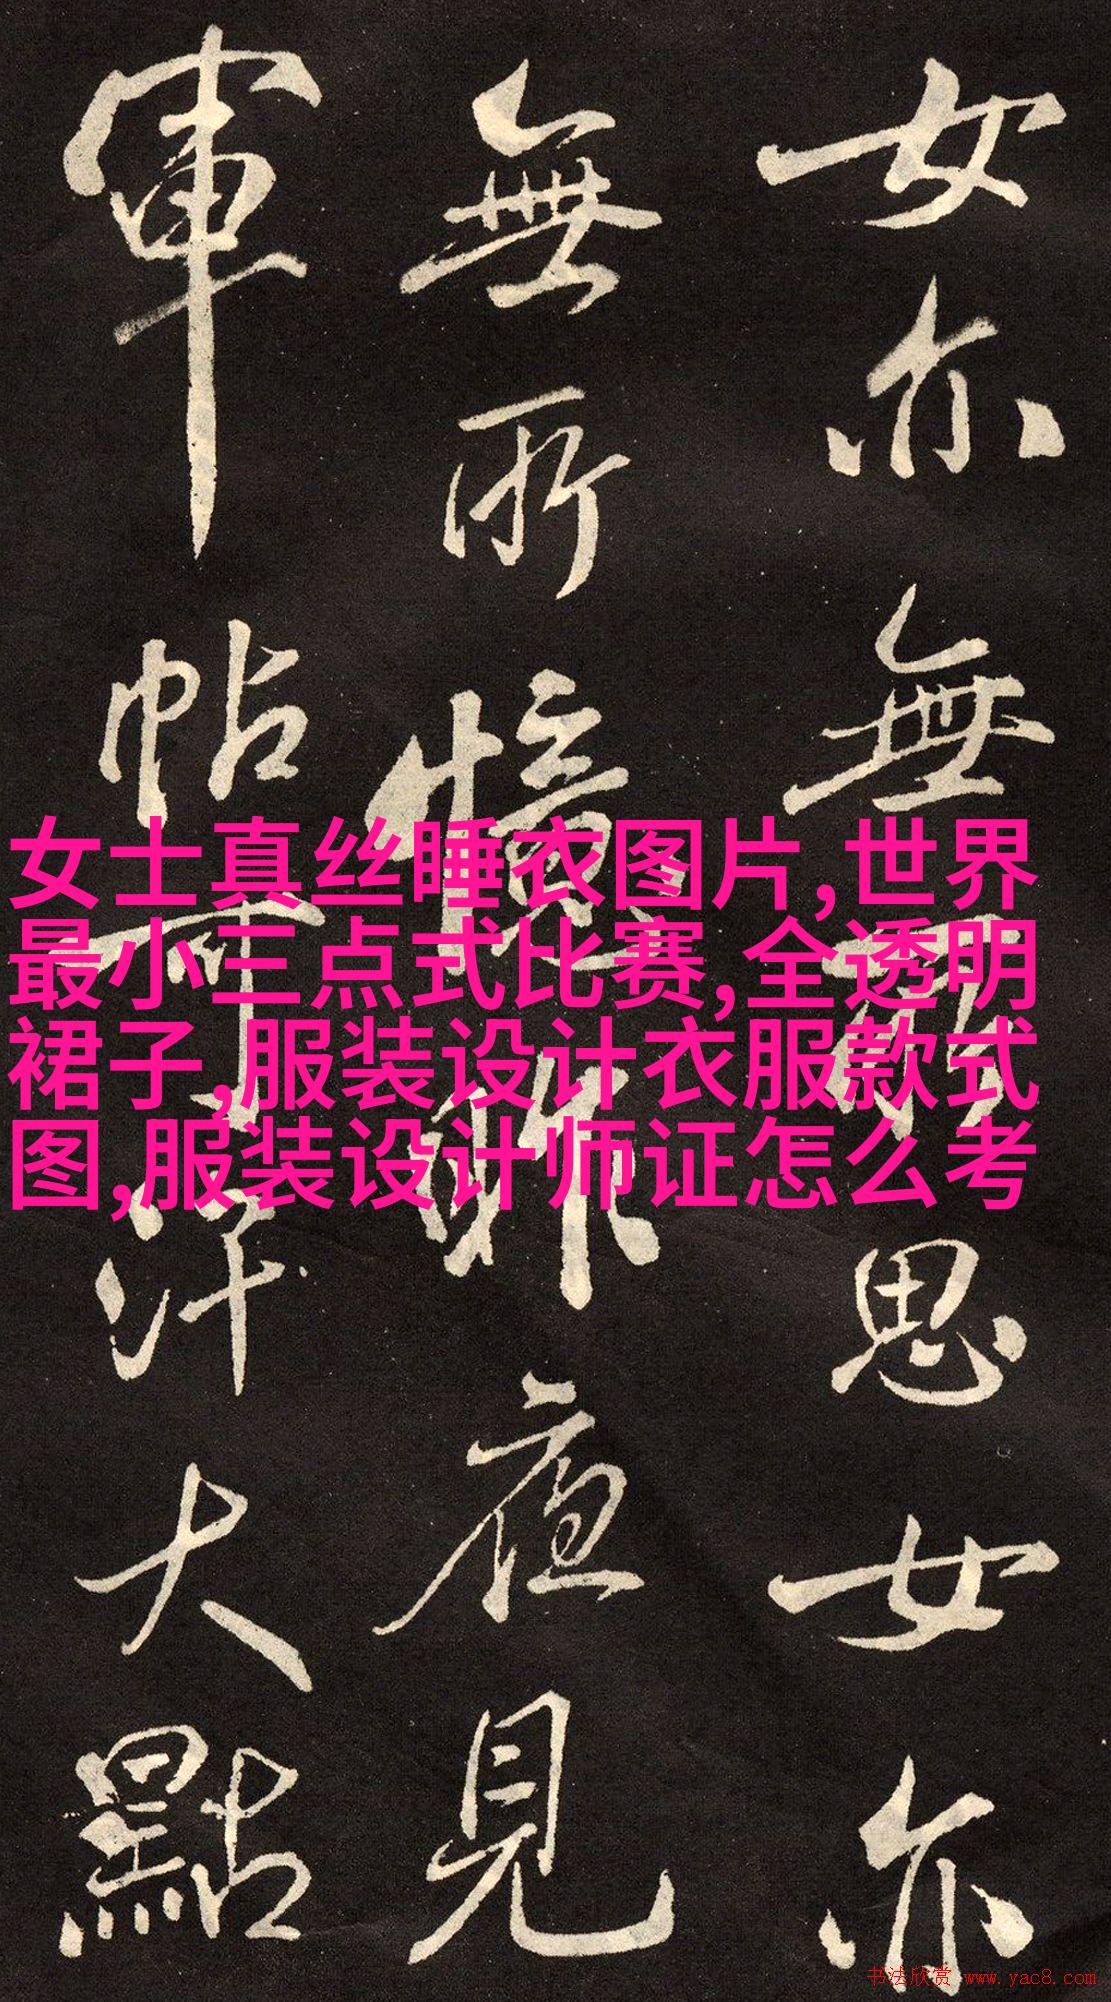 女亦無所思女亦
無所憶昨夜見
軍帖可汗大點
女士真丝睡衣图片,世界
最小三点式比赛,全透明
裙子,服装设计衣服款式
图,服装设计师证怎么考
书法欣赏 www.yac8.com